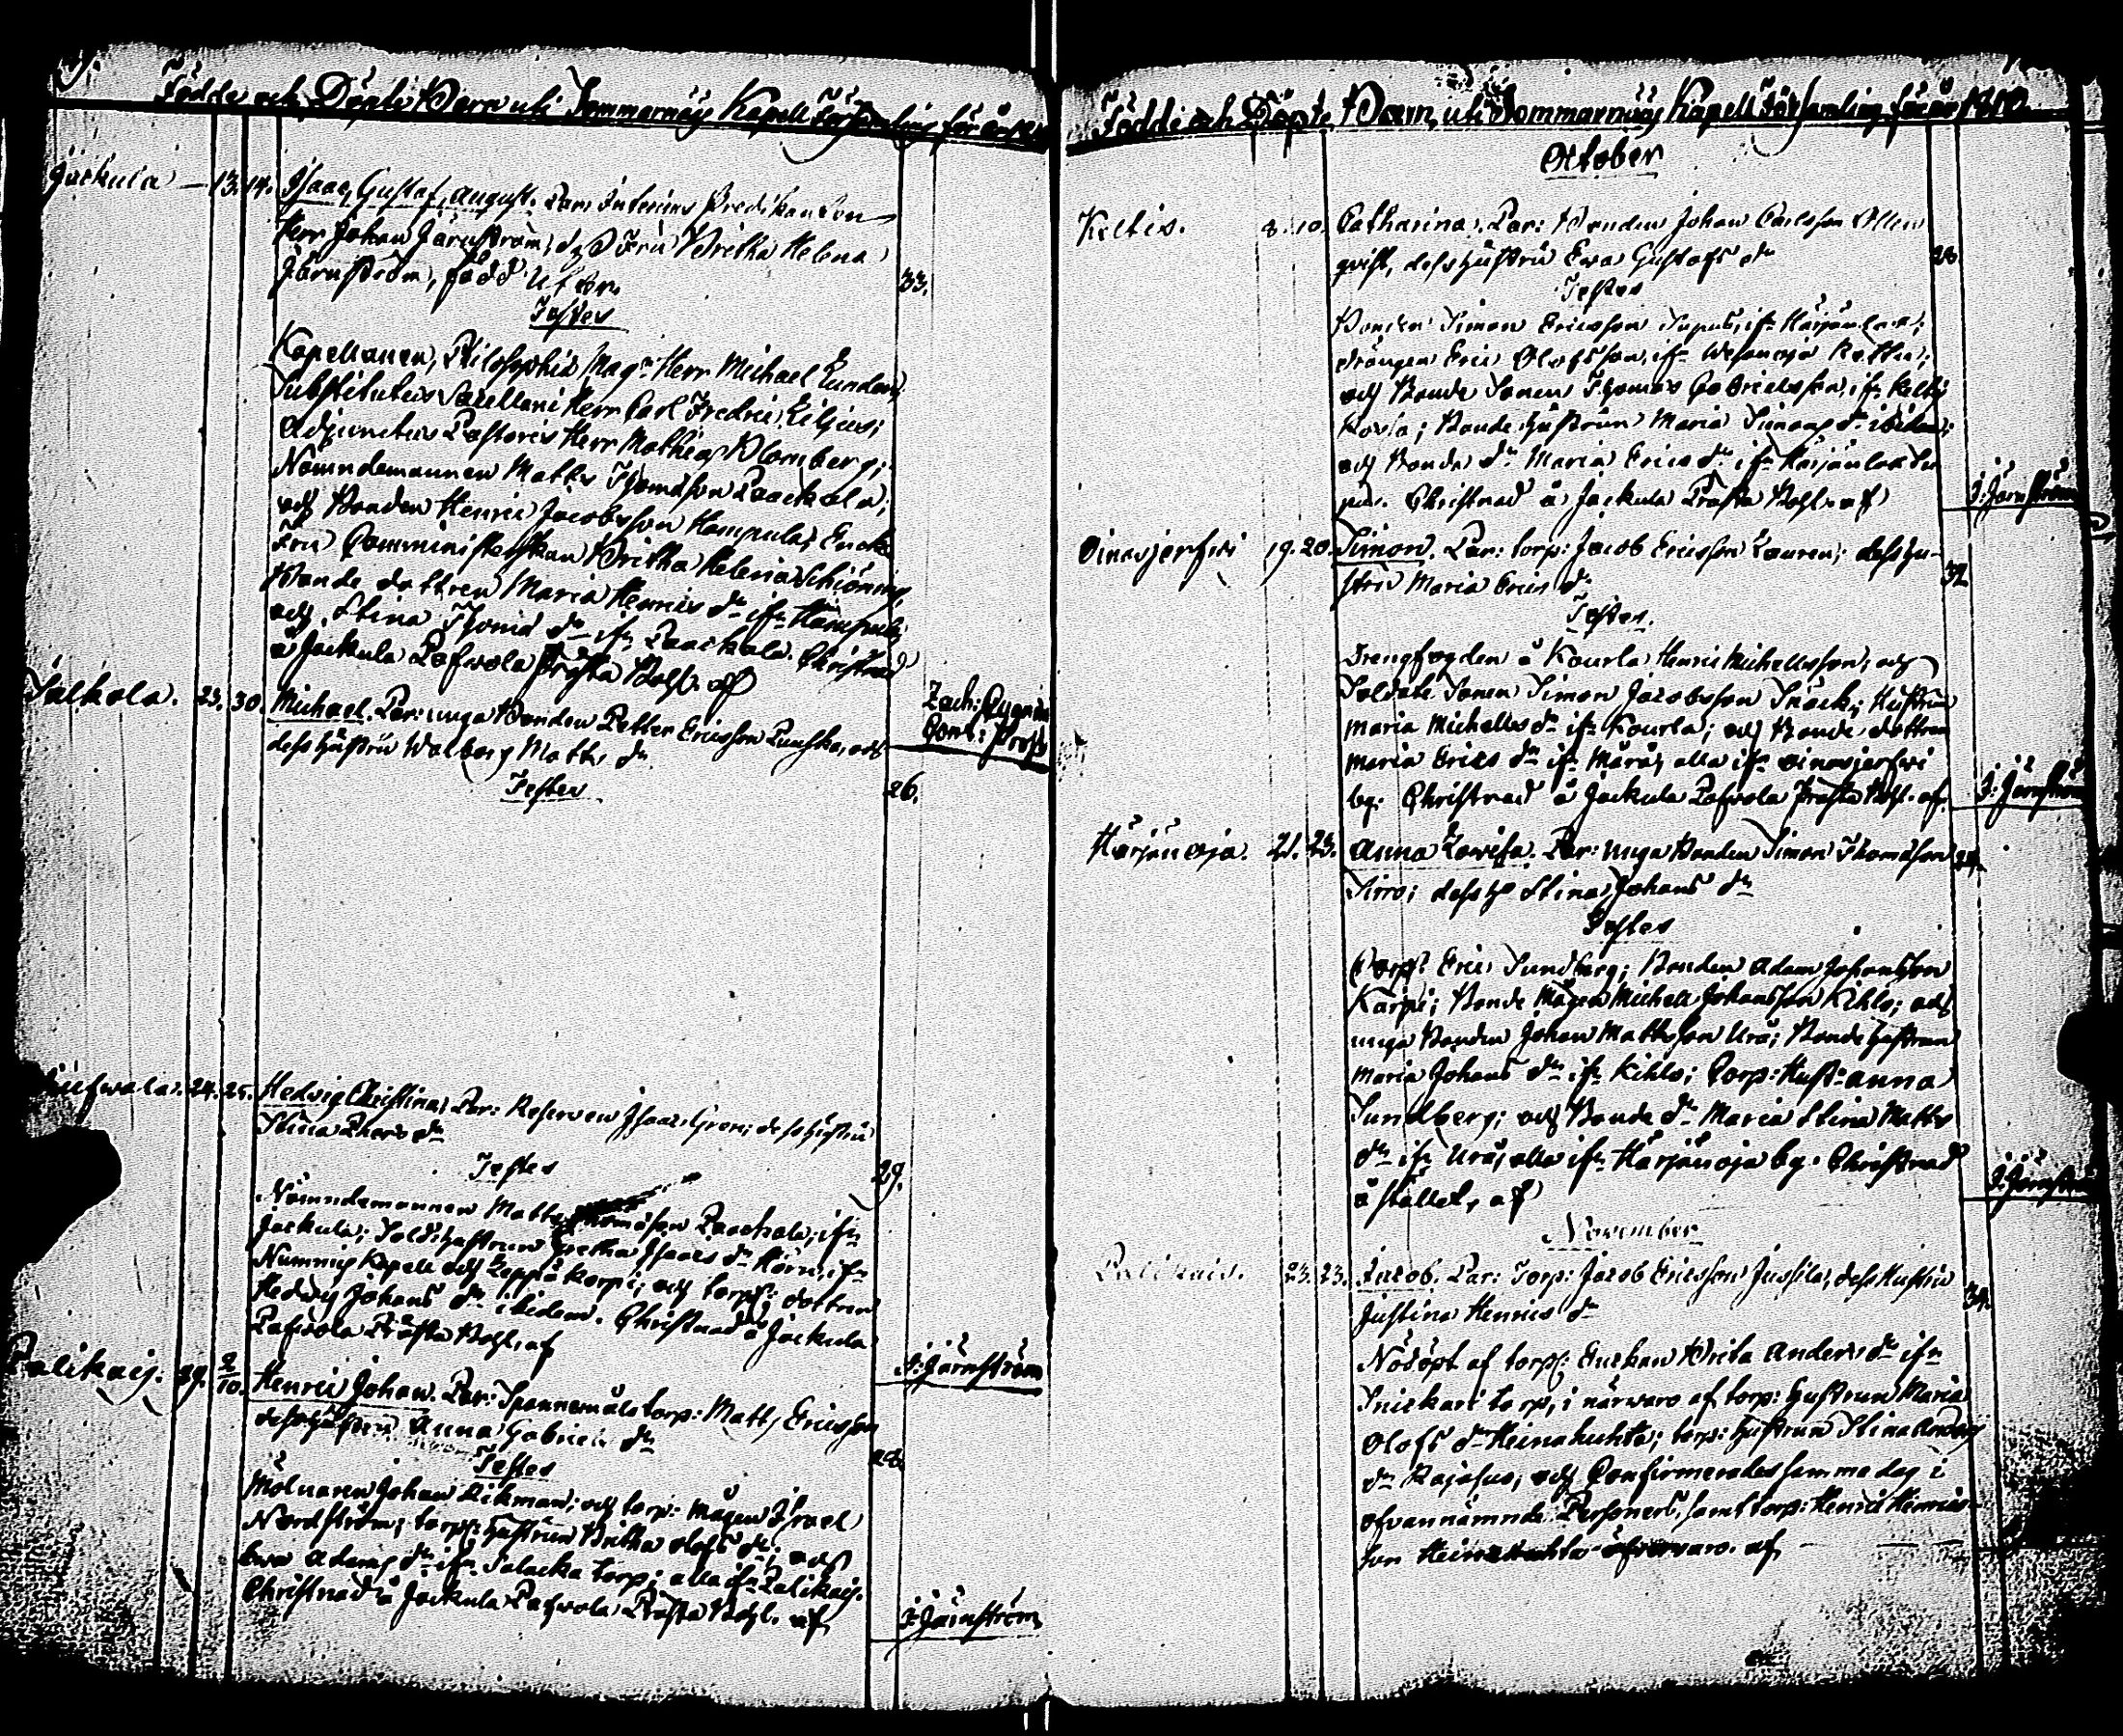 Födde och Döpte Barn uti Sommarnäs Kapell Församling för år
Jackula - 13. 14. Isaac, Gustaf, August. Par: Interims Predikanten
Herr Johan Järnström, dess Fru Britha Helena
Järnström, född
33.
Testes
Kapellanen, Philosophiæ Mag: Herr Michael
Substitutus Sacellani Herr Carl Fredric Liljeus;
Adjunctus Pastoris Herr Mathias Blomberg;
Nämndemannen Matts Thomasson Paackola;
och Bonden Henric Jacobsson Hampula; Enck
Fru Comministerskan Britha Helena Schöning,
Bonde dottren Maria Henrics dr ifn
och Stina Thomæ dr ifn Paackola. Christnad
å Jackula Pafvola Prästa Bohl. af
Zach: Cygnæus
Cont: Prost
Salkola. 23. 30. Michael. Par: unga Bonden Petter Ericsson och
dess hustru Walborg Matts dr
26.
Testes
24. 25. Hedvig Christina, Par: Reserven Isaac Gren; dess hustru
Stina dr
29.
Testes
Nämndemannen Matts Thomasson Paackola, ifn
Jackula; Sold: hustrun Gretha Isaacs dr ifn
Nummis Kapell och Leppäkorpi; och torp: dottren
Hedvig Johans dr ibidem. Christnad å Jackula
Pafvola Prästa Bohl. af
J: Järnström
Palikais. 29. 2/10. Henric Johan. Par: Spannemåls torp: Matts Ericsson
dess hustru Anna Gabriels dr
28.
Testes
Mölnaren Johan Rikman; och torp: mågen Israel
Nordström; torp: hustrun Britha Olofs dr; och
Ewa Adams dr ifn Salacka torp; alla ifn Palikais.
Christnad å Jackula Pafvola Prästa Bohl. af
J: Järnström
Födde och Döpte Barn uti Sommarnäs Kapell Församling för år 1810
October
Keltis. 8. 10. Catharina. Par: Bonden Johan Carlsson
qvist, dess hustru Ewa Gustafs dr
28
Testes
Bonden Simon Ericsson ifn
drängen Eric Olofsson, ifn
och Bonde Sonen Thomas Gabrielsson, ifn Keltis
Bonde hustrun Maria Simons dr ibidem;
och Bonde dr Maria Erics dr ifn
Christnad å Jackula Prästa Bohl. af
J: Järnström
Oinasjerfwi 19. 20. Simon. Par: torp: Jacob Ericsson Lauren; dess hu-
stru Maria Erics dr
32
Testes.
Drengfogden å Kourla Henric Michelsson, och
Soldate Sonen Simon Jacobsson Snäck; Hustrun
Maria Michels dr ifn Kourla; och Bonde dottren
Maria Erics dr ifn Märä, alla ifn Oinasjerfwi
by. Christnad å Jackula Pafvola Prästa Bohl. af
J: Järnström
Härjänoja. 21. 23. Anna Lovisa. Par: unga Bonden Simon Thomasson
Sirro; dess h: Stina Johans dr
Testes
Corp: Eric Sundberg; Bonden Adam Johansson
Karpi; Bonde Mågen Michell Johansson Kihlo; och
unga Bonden Johan Mattsson Urå; Bonde hustrun
Maria Johans dr ifn Kihlo; Corp: Hust: Anna
Sundberg; och Bonde dr Maria Stina Matts
dr ifn Urå, alla ifn Härjänoja by. Christnad
å stället, af
J: Järnström
November
Palikais. 23. 23. Jacob. Par: Torp: Jacob Ericsson Jussila, dess Hustru
Justina Henrics dr
34.
Nödöpt af torp: Enckan Brita Anders dr ifn
Snickari torp, i närwaro af torp: hustrun Maria
Olofs dr Heinahuhta; torp: hustrun Stina Anders
dr Rajasuo, och Confirmerades samma dag i
ofvannämnde Personers, samt torp: Henric Henrics-
son Heinahuhta öfvervaro. af